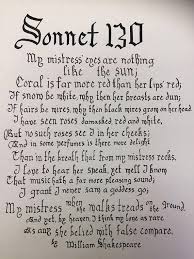 Sonnet 130
My mistress' eyes are nothing
like the sun;
Coral is far more red than her lips' red;
If snow be white, why then her breasts are dun;
If hairs be wires, why then black wires grow on her head.
I have seen roses damasked, red and white,
But no such roses see I in her cheeks;
And in some perfumes is there more delight
Than in the breath that from my mistress reeks.
I love to hear her speak, yet well I know
That music hath a far more pleasing sound;
I grant I never saw a goddess go;
My mistress when she walks treads on the ground.
And yet, by heaven, I think my love as rare
As any she belied with false compare.
by
William Shakespeare